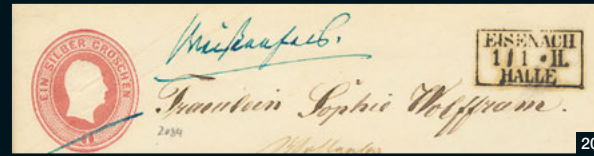 EIN SILBER GROSCHEN
1
Weißenfels.
EISENACH
1 1 * II.
HALLE
Fraeulein Sophie Wolffram.
2084
20